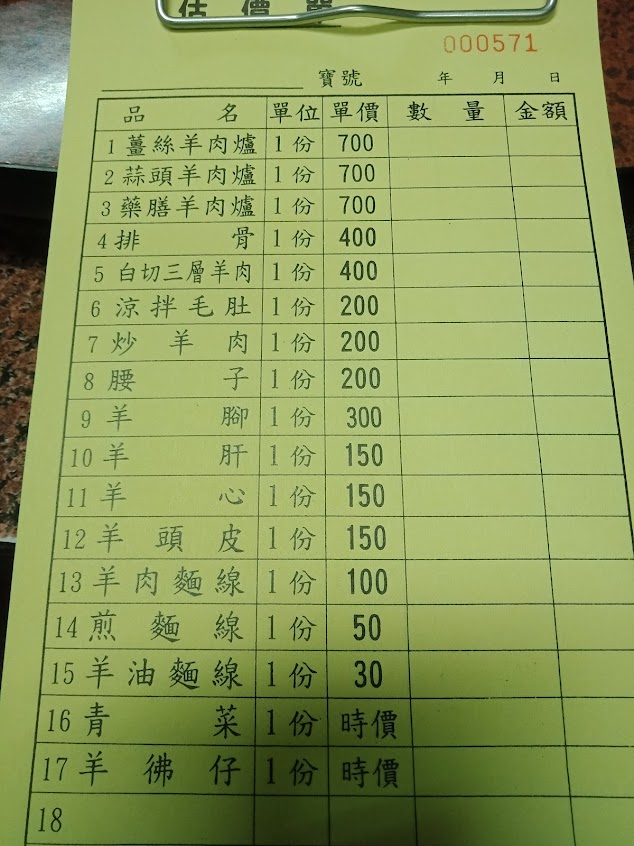 估價單
000571
寶號 年 月 日
品名 單位 單價 數量 金額
1 薑絲羊肉爐 1份 700
2 蒜頭羊肉爐 1份 700
3 藥膳羊肉爐 1份 700
4 排骨 1份 400
5 白切三層羊肉 1份 400
6 涼拌毛肚 1份 200
7 炒羊肉 1份 200
8 腰子 1份 200
9 羊腳 1份 300
10 羊肝 1份 150
11 羊心 1份 150
12 羊頭皮 1份 150
13 羊肉麵線 1份 100
14 煎麵線 1份 50
15 羊油麵線 1份 30
16 青菜 1份 時價
17 羊彿仔 1份 時價
18